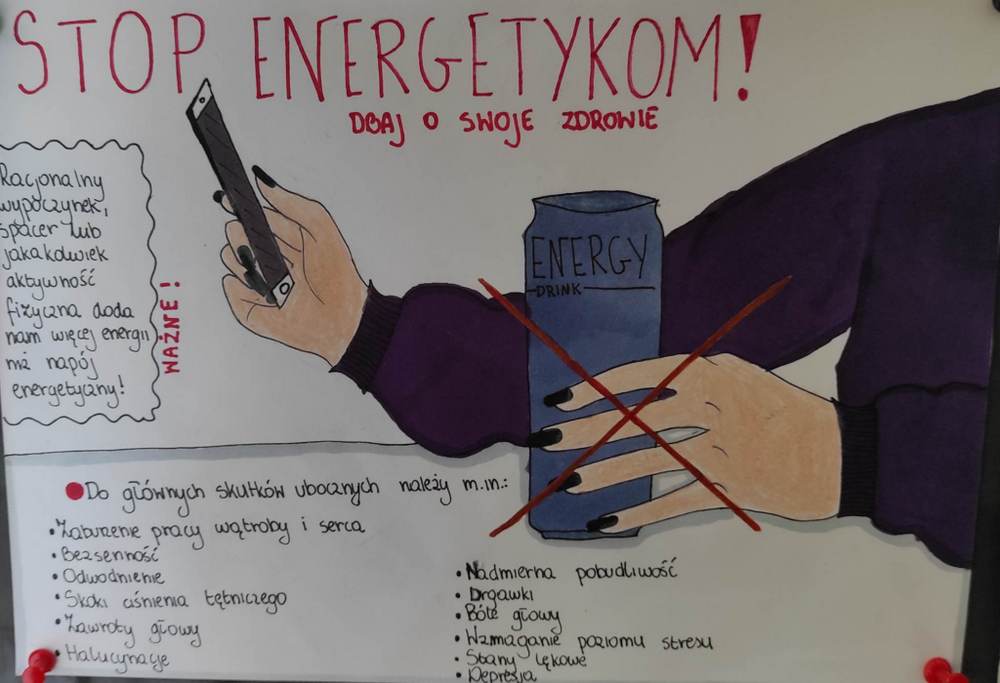 STOP ENERGETYKOM!
DBAJ O SWOJE ZDROWIE
Racjonalny
wypoczynek,
spacer lub
jakakolwiek
aktywność
fizyczna doda
nam więcej energii
niż napój
energetyczny!
WAŻNE!
ENERGY
DRINK
Do głównych skutków ubocznych należy m.in.:
• Zaburzenie pracy wątroby i serca
• Bezsenność
• Odwodnienie
• Skoki ciśnienia tętniczego
• Zawroty głowy
• Halucynacje
• Nadmierna pobudliwość
• Drgawki
• Bóle głowy
• Wzmaganie poziomu stresu
• Stany lękowe
• Depresja